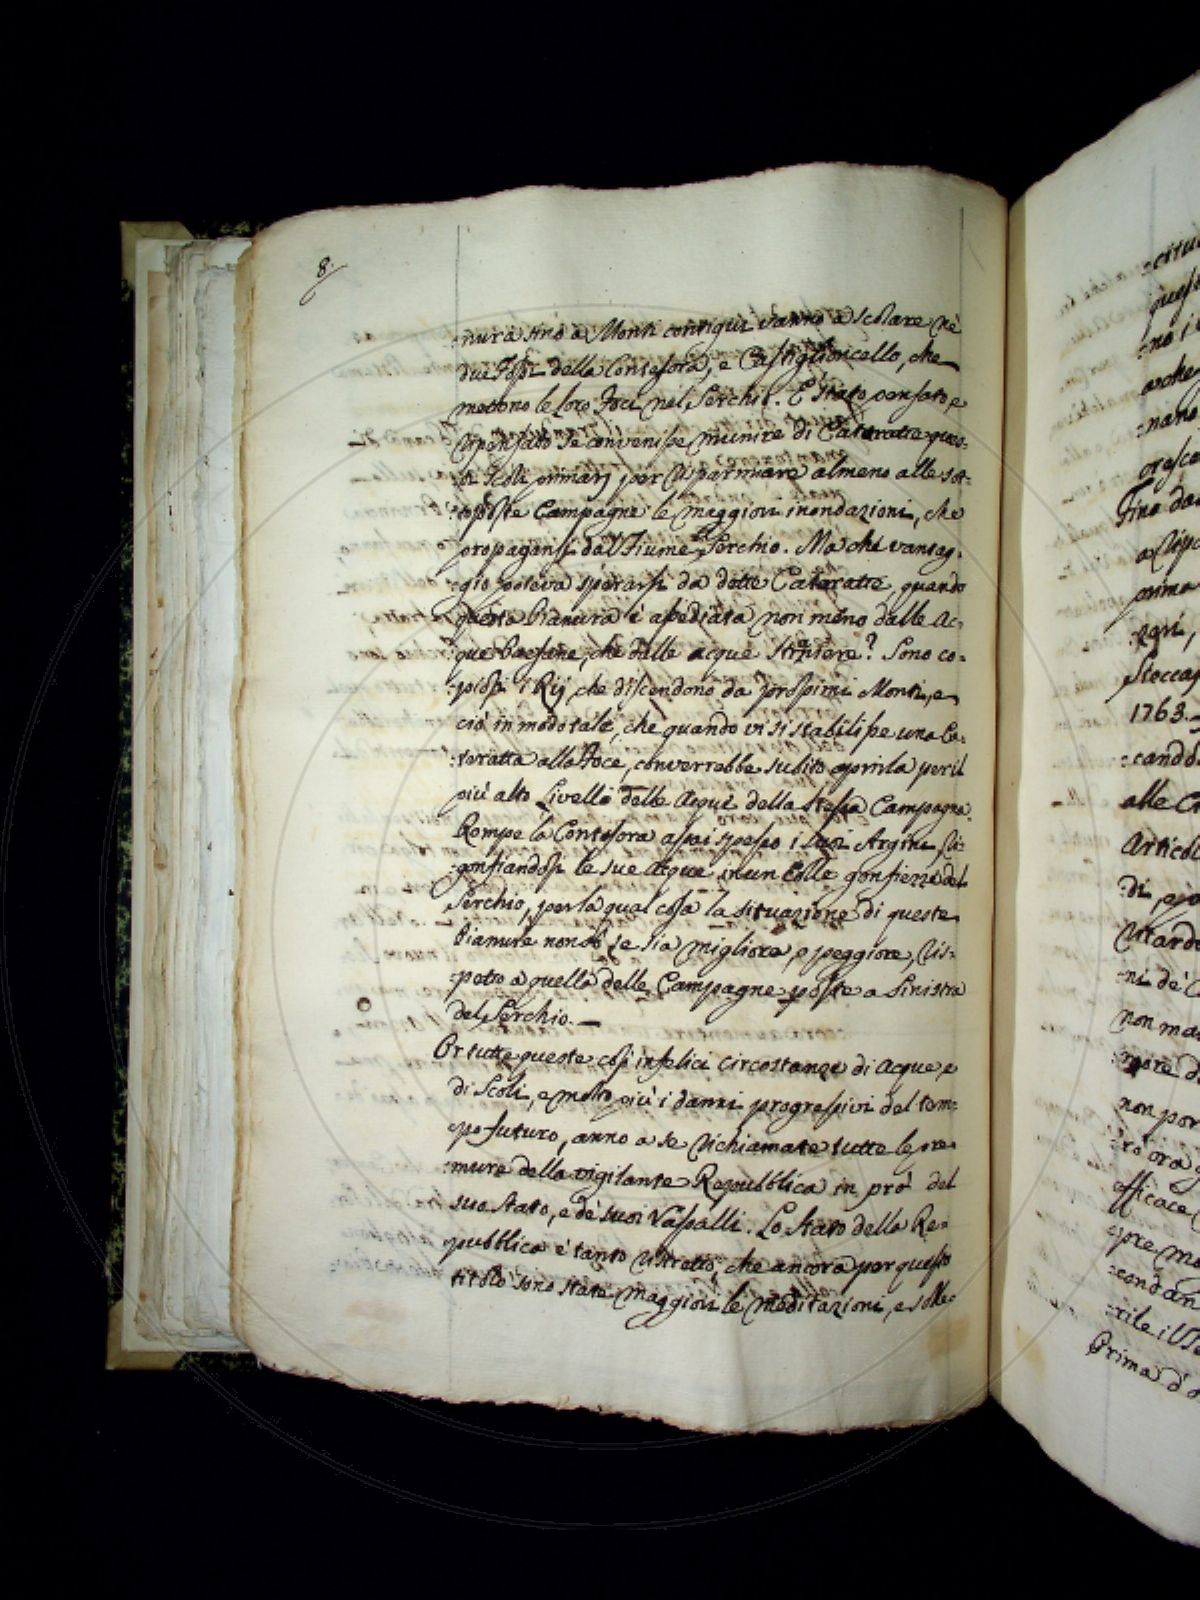 8.
:nura sino a Monti contigui vanno a scolare né
due Fossi della Contesora, e Castiglioncello, che
mettono le loro Foci nel Serchio. E' stato pensato, e
ripensato se convenisse munire di Cataratte ques:
:ti Scoli primarj per risparmiare almeno alle sot:
:toposte Campagne le maggiori inondazioni, che
propagansi dal Fiume Serchio. Ma che vantag:
:gio poteva sperarsi da dette Cataratte, quando
questa Pianura é assediata non meno dalle Ac:
:que Paesane, che dalle acque straniere? Sono co:
:piosi i Rij che discendono da prossimi Monti, e
ció in modo tale, che quando vi si stabilisse una Ca:
:teratta alla Foce, converrebbe subito aprirla per il
piú alto Livello delle Acque della stessa Campagna.
Rompe la Contesora assai spesso i suoi Argini, ri:
:gonfiandosi le sue Acque in un colle gonfiezze del
Serchio, per la qual cosa la situazione di queste
Pianure non só se sia migliore, o peggiore, ris:
:petto a quella delle Campagne poste a Sinistra
del Serchio. —
Or tutte queste cosí infelici circostanze di Acque, e
di Scoli, e molto piú i danni progressivi del tem:
:po futuro, anno a se richiamate tutte le pre:
:mure della vigilante Repubblica in pró del
suo stato, e dé suoi Vassalli. Lo stato della Re:
:pubblica é tanto ristretto, che ancora per questo
titolo sono state maggiori le meditazioni, e solle:
:citu
quest
:no i
anche
:nano
cresce
Fino da
a Ripa
prima
Stoccas
1763.
:cando
alle C
Articol
:di
:ni dé C
non ma
:more d
non por
:ró ora
efficace
:pre mo
:condan
:rile il Se
Prima d'